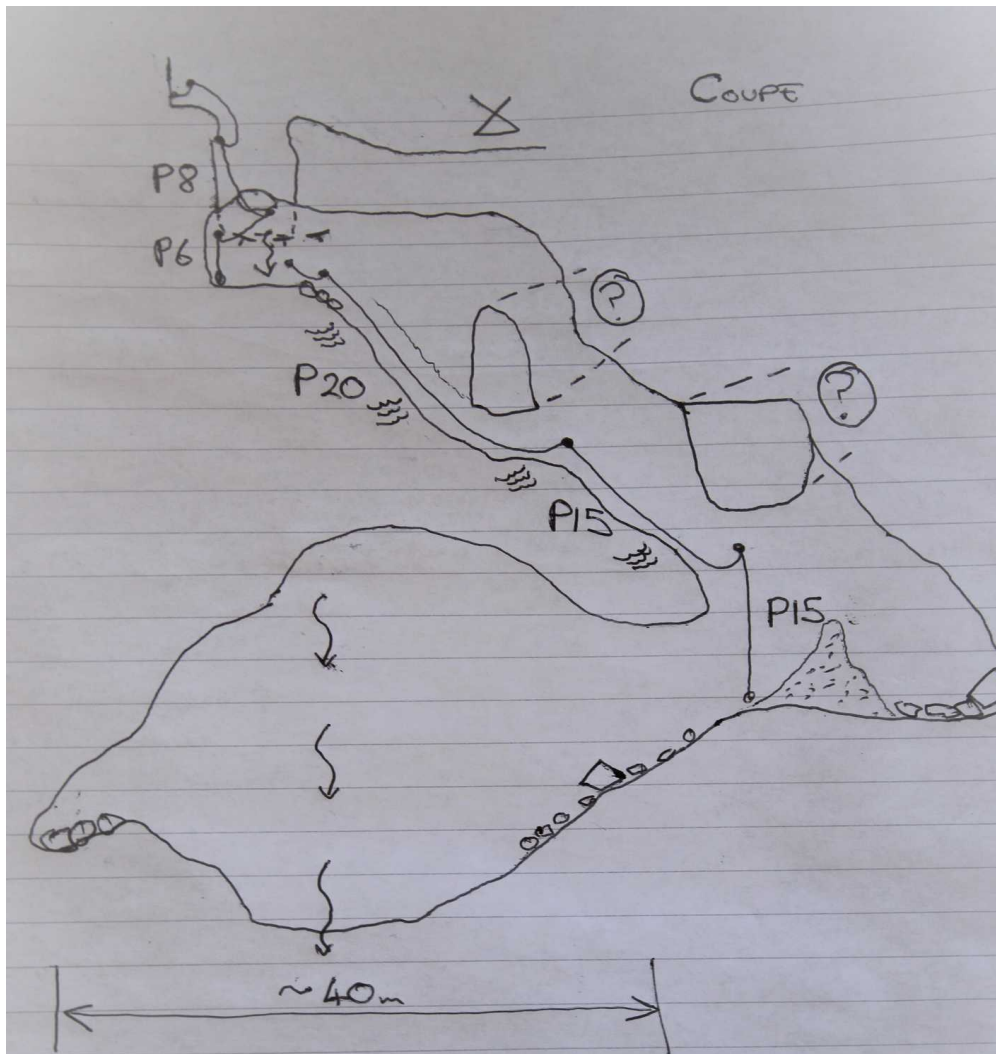 COUPE
P8
P6
?
P20
?
P15
P15
~40m